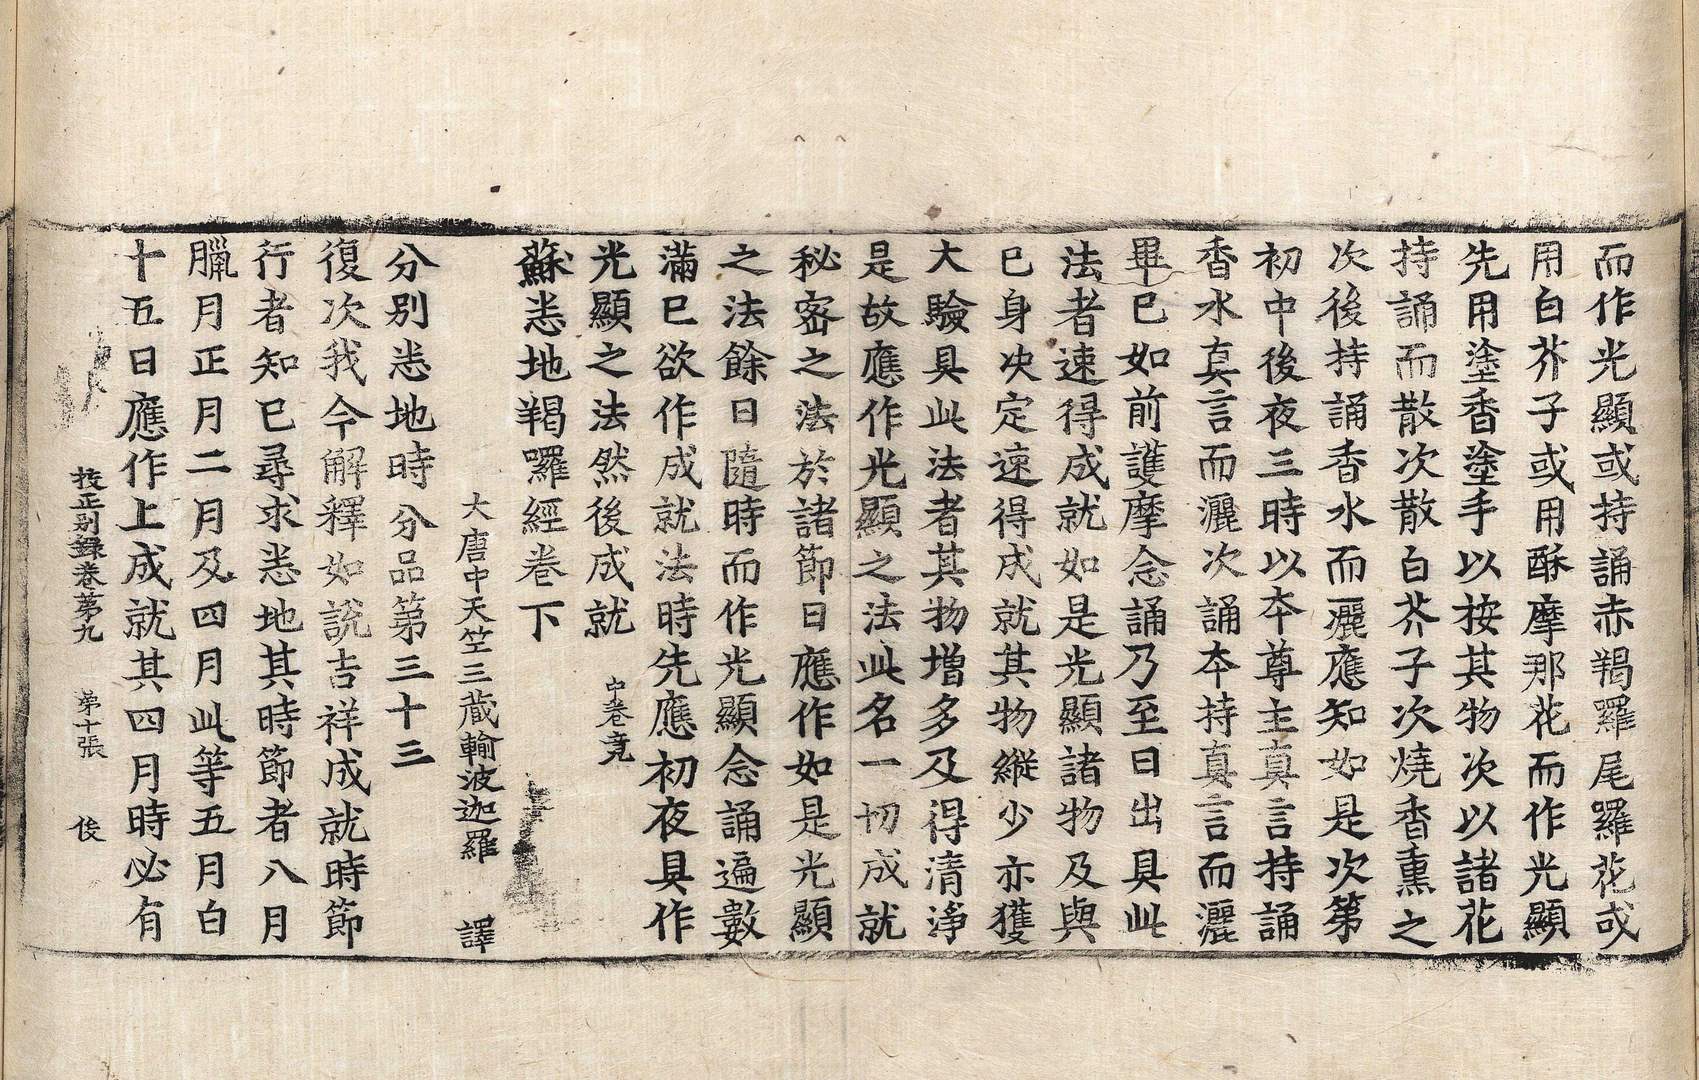 而作光顯或持誦赤羯羅尾羅花或
用白芥子或用酥摩那花而作光顯
先用塗香塗手以按其物次以諸花
持誦而散次散白芥子次燒香熏之
次後持誦香水而灑應知如是次第
初中後夜三時以夲尊主真言持誦
香水真言而灑次誦夲持真言而灑
畢已如前護摩念誦乃至日出具此
法者速得成就如是光顯諸物及與
已身决定速得成就其物縱少亦獲
大驗具此法者其物增多及得清淨
是故應作光顯之法此名一切成就
秘密之法於諸節日應作如是光顯
之法餘日隨時而作光顯念誦遍數
滿已欲作成就法時先應初夜具作
光顯之法然後成就 中卷竟
蘇悉地羯囉經卷下
大唐中天竺三藏輸波迦羅 譯
分别悉地時分品第三十三
復次我今解釋如說吉祥成就時節
行者知已尋求悉地其時節者八月
臘月正月二月及四月此等五月白
十五日應作上成就其四月時必有
校正别錄卷第九 第十張 俊